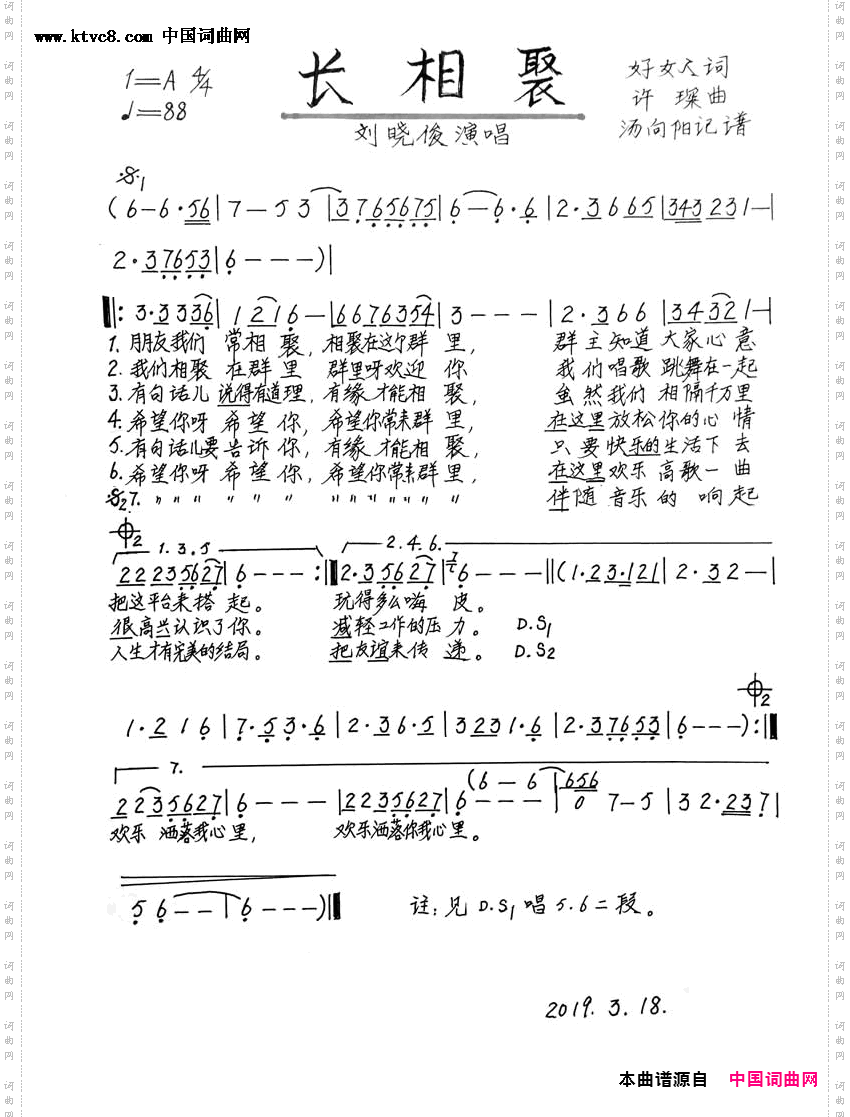 www.ktvc8.com 中国词曲网
长相聚
1=A 4/4
♩=88
好女人词
许琛曲
汤向阳记谱
刘晓俊演唱
𝄋1
(6-6·56|7-53|3765675|6-6·6|2·3665|343231-|
2·37653|6---)|
‖:3·3336|1216-|66763554|3---|2·366|34321-|
1.朋友我们 常相聚,相聚在这个群里, 群主知道大家心意
2.我们相聚 在群里 群里呀欢迎你 我们唱歌跳舞在一起
3.有句话儿 说得有道理,有缘才能相聚, 虽然我们相隔千万里
4.希望你呀 希望你,希望你常来群里, 在这里放松你的心情
5.有句话儿要告诉你,有缘才能相聚, 只要快乐的生活下去
6.希望你呀 希望你,希望你常来群里, 在这里欢乐高歌一曲
𝄋2 7. 〃 〃 〃 〃 〃 〃 〃 〃 〃 〃 〃 〃 〃 〃 〃 伴随音乐的响起
𝄌2 1.3.5 2.4.6.
22235627|6---:‖2·35627|6---‖(1·23·121|2·32-|
把这平台来搭起。 玩得多么嗨皮。
很高兴认识了你。 减轻工作的压力。 D.S1
人生才有完美的结局。 把友谊来传递。 D.S2
𝄌2
1·216|7·53·6|2·36·5|3231·6|2·37653|6---):‖
7.
(6-6|656
2235627|6---|2235627|6---|0 7-5|32·237|
欢乐 洒落我心里, 欢乐洒落你我心里。
56--|6---)‖ 注:见D.S1唱5.6二段。
2019.3.18.
本曲谱源自 中国词曲网
词曲网